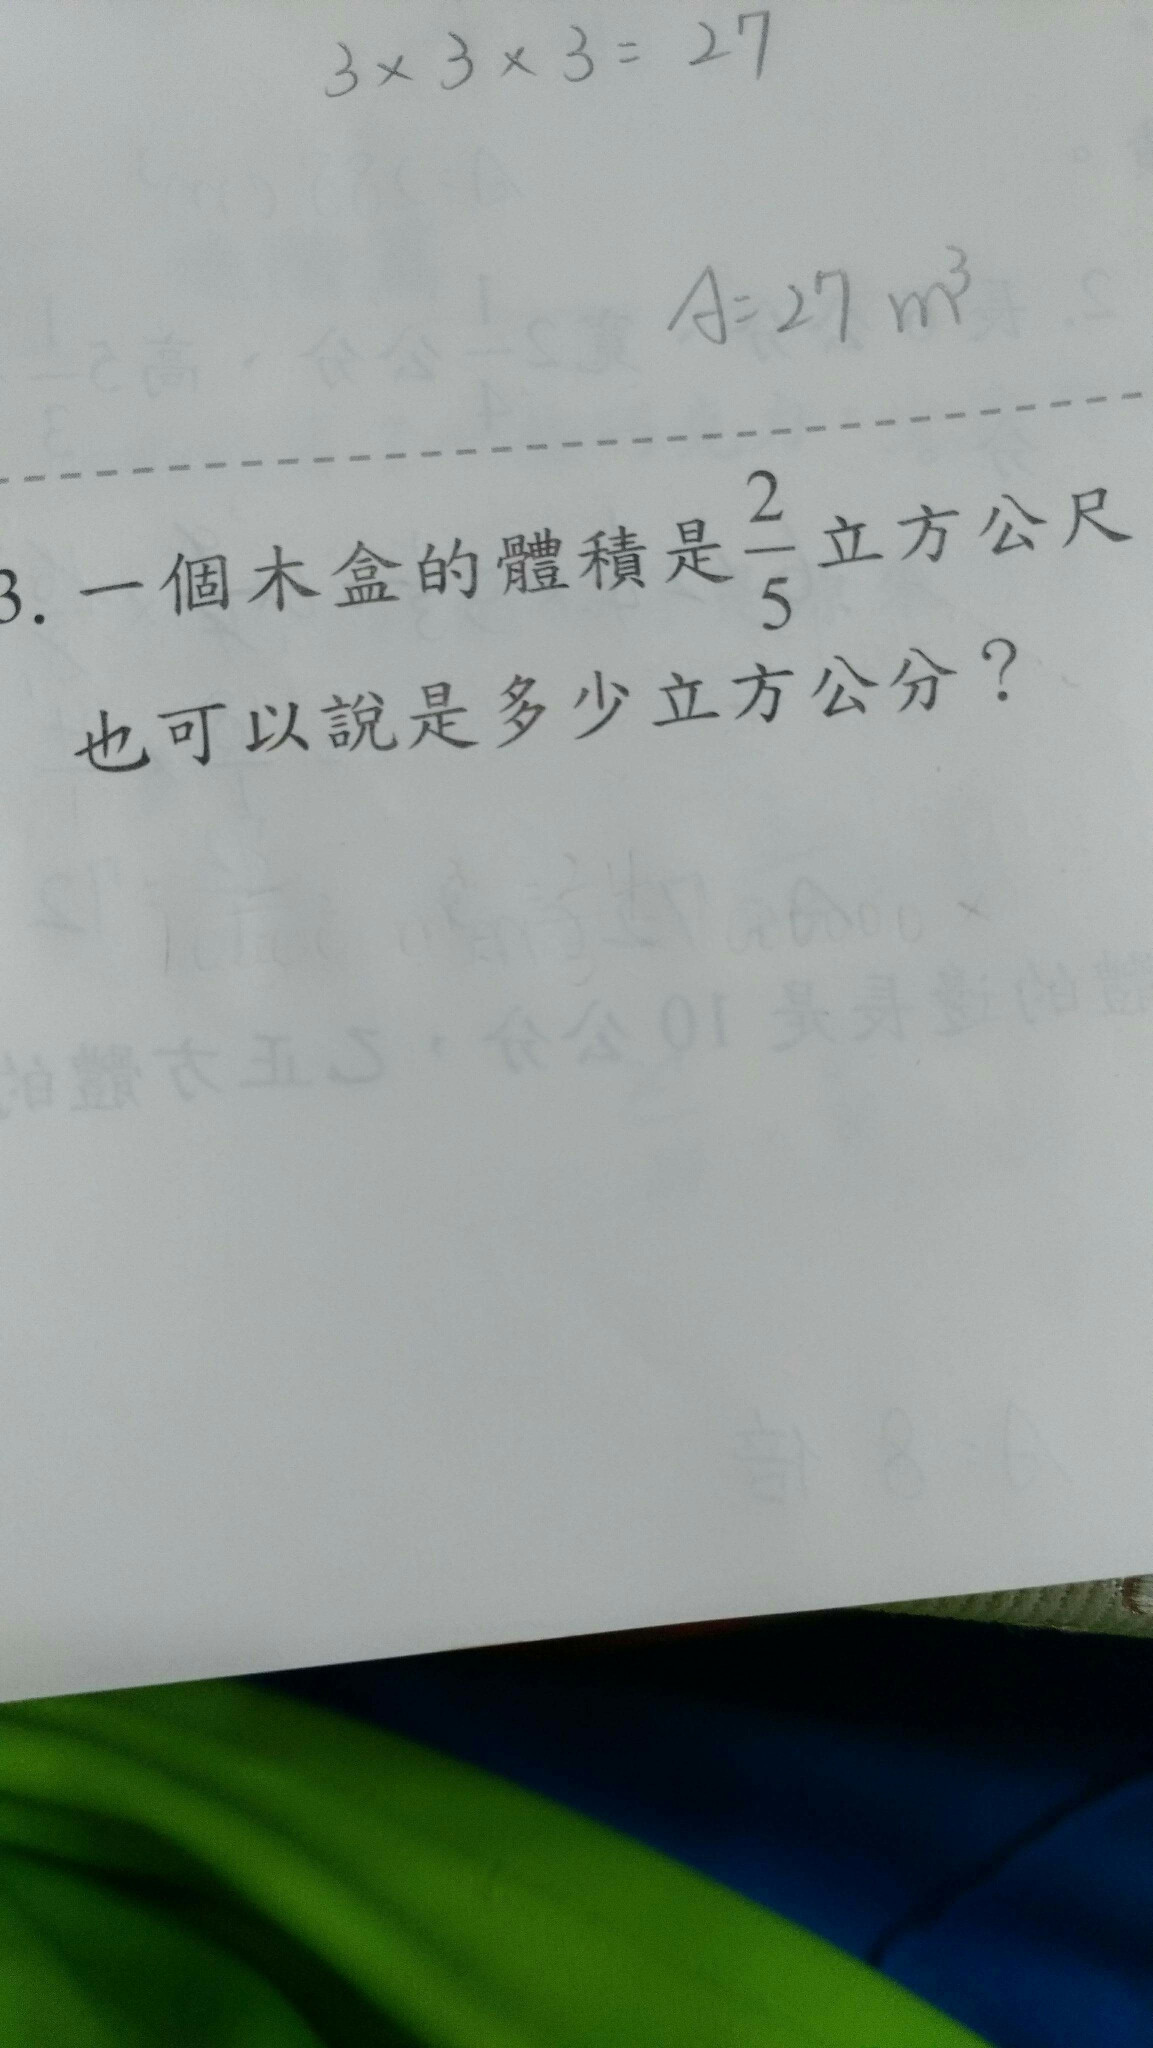 3×3×3=27
A=27 m³
3. 一個木盒的體積是2/5立方公尺
也可以說是多少立方公分？